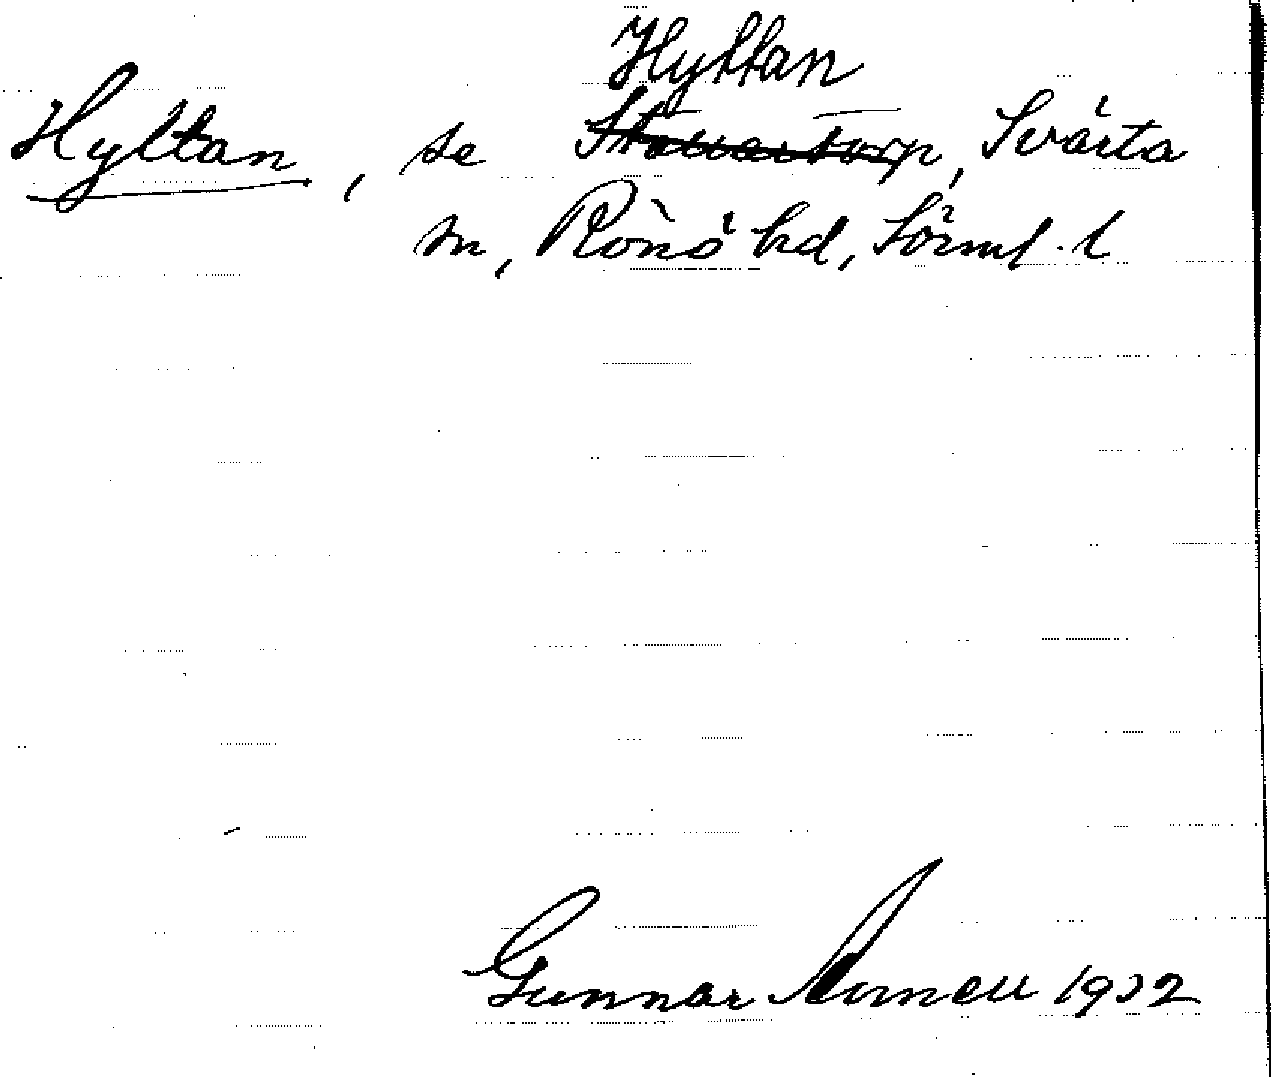 Hyttan
Hyltan, se Stavartorp, Svärta
sn, Rönö hd, Sörml. l
Gunnar Arnell 1932